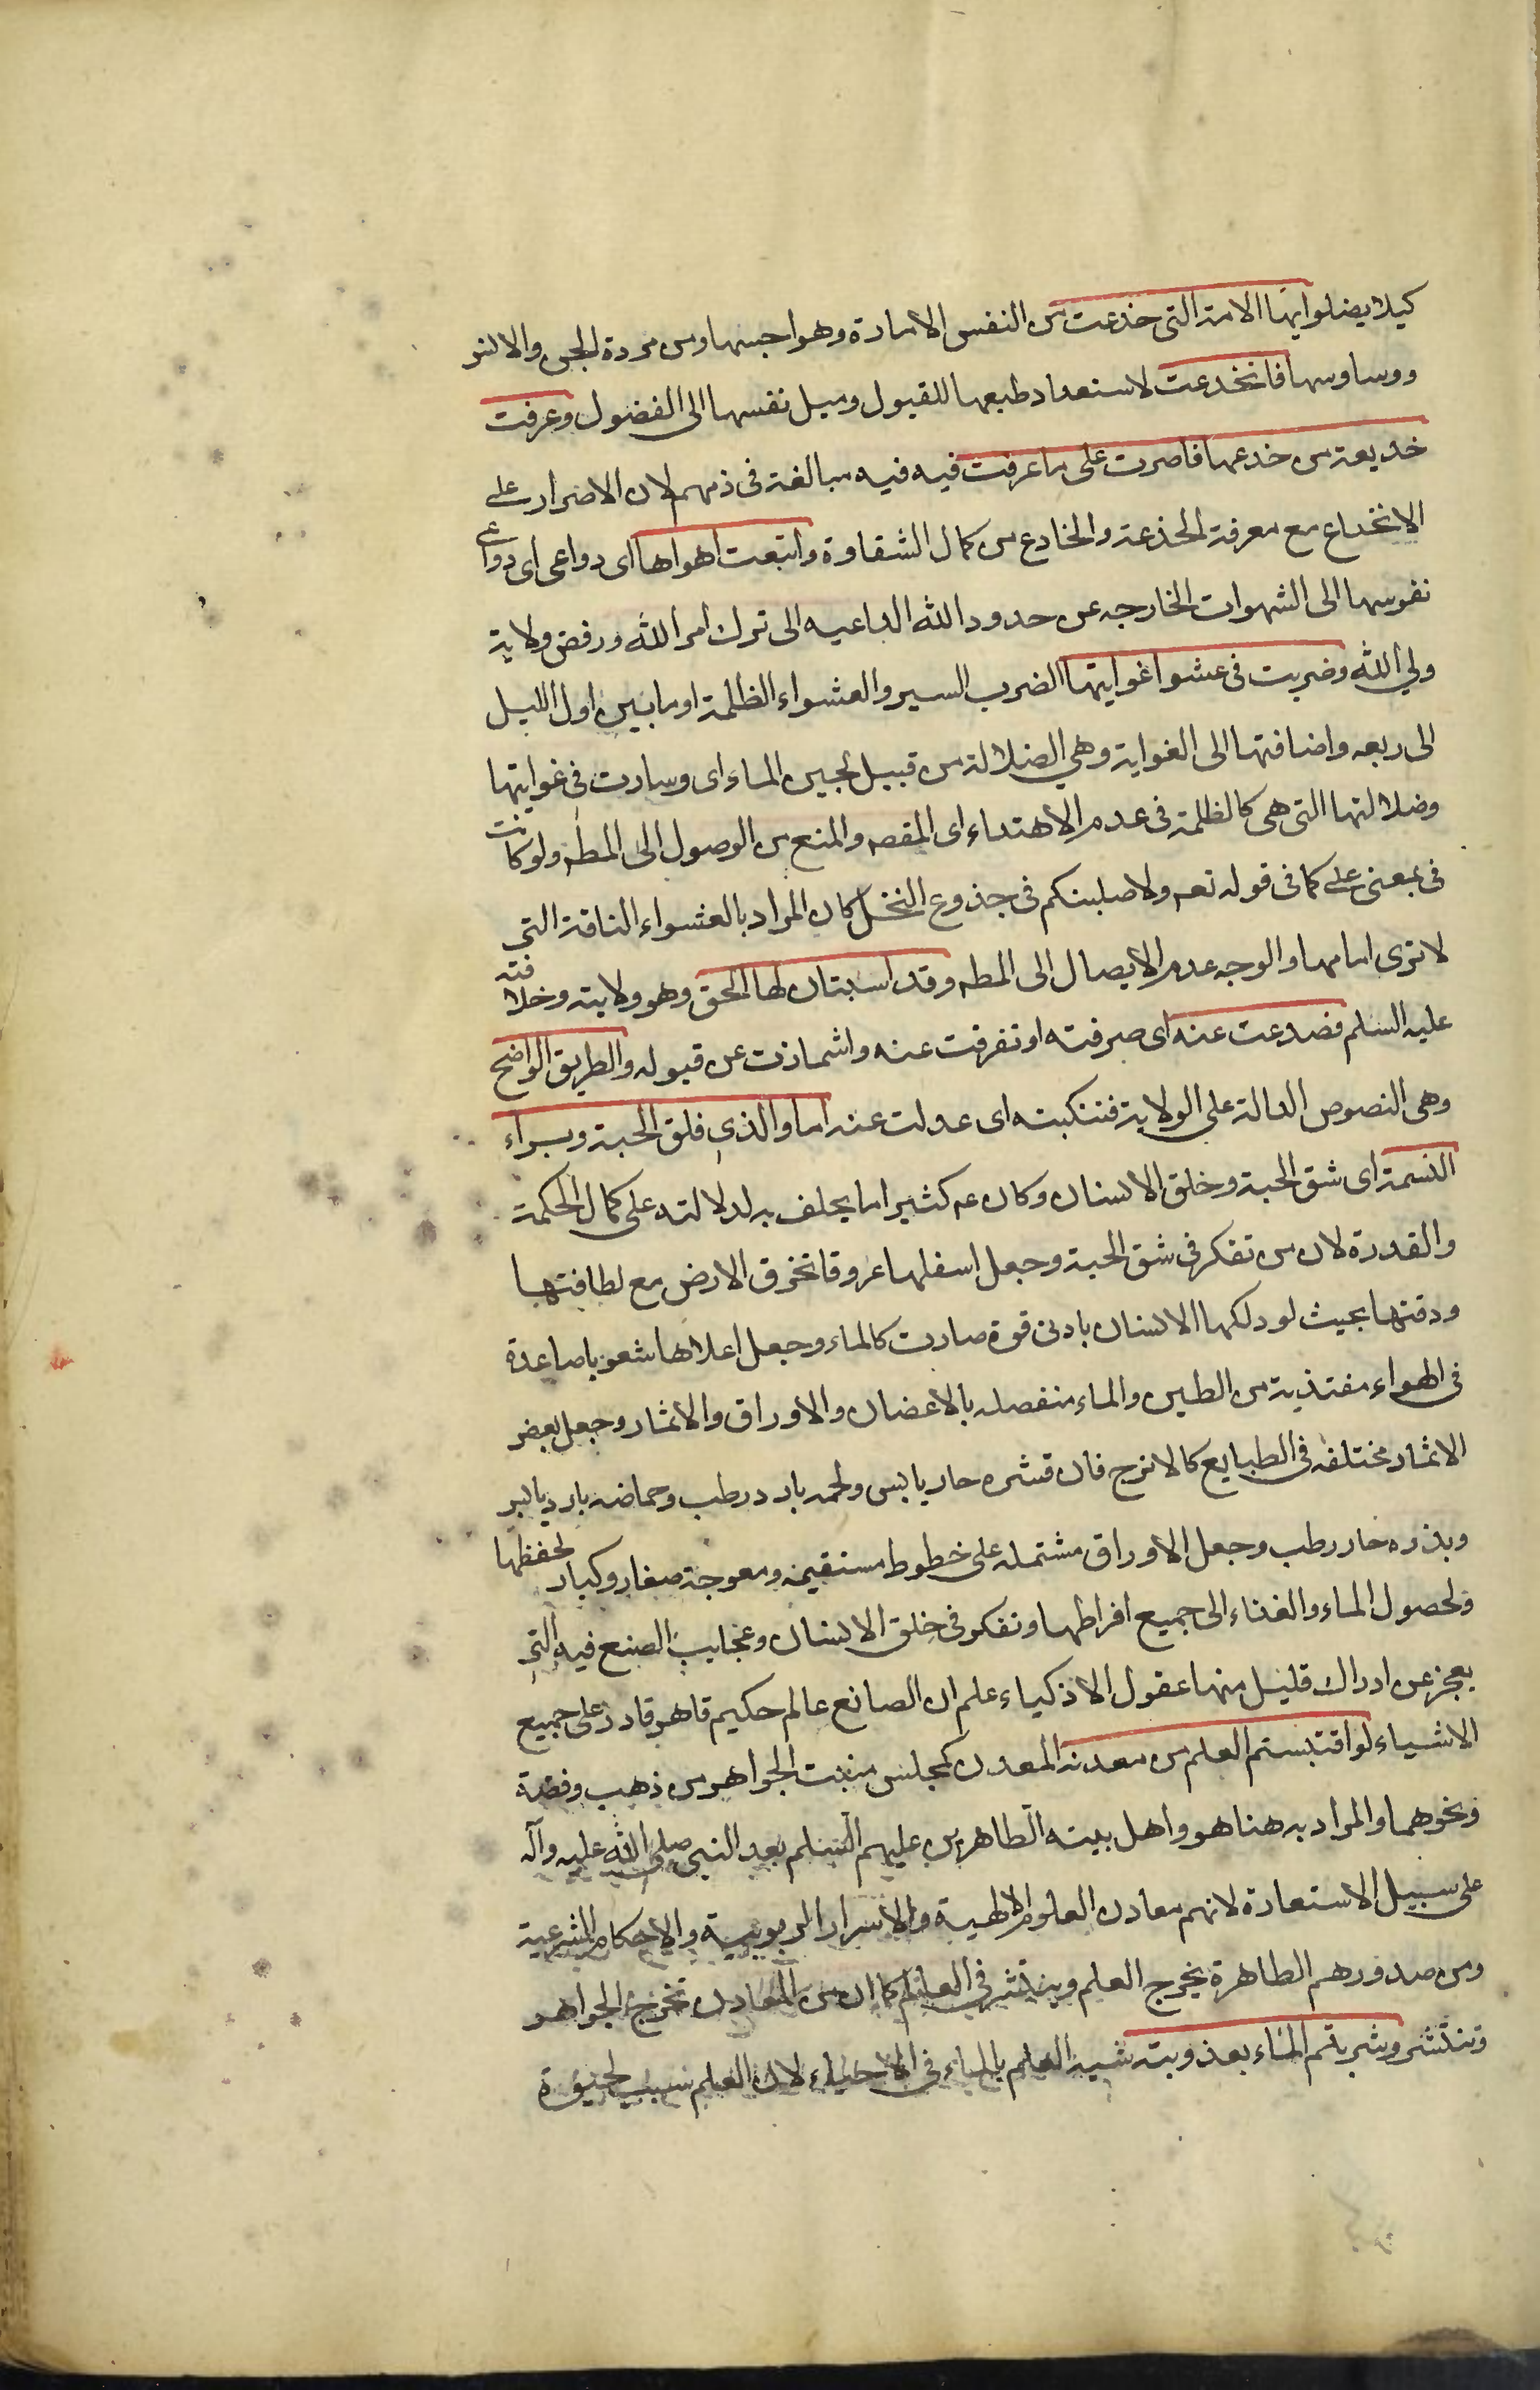 كيلا يضلوا ايتها الامة التى خدعت من النفس الامارة وهواجسها ومن مردة الجن والانس
ووساوسها فانخدعت لاستعداد طبعها للقبول وميل نفسها الى الفضول وعرفت
خديعة من خدعها فاصرت على ما عرفت فيه فيه مبالغة فى ذمهم لان الاضرار على
الانخداع مع معرفة الخدعة والخادع من كمال الشقاوة واتبعت اهواها اى دواعى اى دواعى
نفوسها الى الشهوات الخارجه عن حدود الله الداعيه الى ترك امر الله ورفض ولاية
ولي الله وضربت فى عشوا غوايتها الضرب السير والعشواء الظلمة او ما بين اول الليل
الى ربعه واضافتها الى الغواية وهي الضلالة من قبيل لجين الماء اى وسارت فى غوايتها
وضلالتها التى هى كالظلمة فى عدم الاهتداء اى المقصد والمنع من الوصول الى المطه ولو كانت
فى بمعنى على كما فى قوله تعه ولاصلبنكم فى جذوع النخل كان المراد بالعشواء الناقة التى
لا ترى امامها والوجه عدم الايصال الى المطه وقد استبان لها الحق وهو ولايته وخلافته
عليه السلم فصدعت عنه اى صرفته او تفرقت عنه واشمازت عن قبوله والطريق الواضح
وهى النصوص الدالة على الولاية فتنكبته اى عدولت عنه اما والذى فلق الحبة وبراء
النسمة اى شق الحبة وخلق الانسان وكان عه كثيرا ما يحلف به لدلالته على كمال الحكمة
والقدرة لان من تفكر فى شق الحبة وجعل اسفلها عروقا تخرق الارض مع لطافتها
ودقتها بحيث لو دلكها الانسان بادنى قوة صارت كالماء وجعل اعلاها شعوبا صاعدة
فى الهواء مغتذية من الطين والماء منفصله بالاغصان والاوراق والاثمار وجعل بعض
الاثمار مختلفه فى الطبايع كالاترج فان قشره حار يابس ولحمه بارد رطب وحماضه بارد يابس
وبذره حار رطب وجعل الاوراق مشتمله على خطوط مستقيمة ومعوجة صغار وكبار لحفظها
ولحصول الماء والغذاء الى جميع افراطها وتفكر فى خلق الانسان وعجايب الصنع فيه التى
يعجز عن ادراك قليل منها عقول الاذكياء علم ان الصانع عالم حكيم قاهر قادر على جميع
الاشياء لو اقتبستم العلم من معدنه المعدن كمجلس منبت الجواهر من ذهب وفضة
ونحوهما والمراد به هنا هو واهل بيته الطاهرين عليهم السلم بعد النبى صلى الله عليه وآله
على سبيل الاستعارة لانهم معادن العلوم الالهية والاسرار الربوبية والاحكام الشرعية
ومن صدورهم الطاهرة يخرج العلم وينتشر فى العالم كما ان من المعادن تخرج الجواهر
وتنتشر وشربتم الماء بعذوبته شبه العلم بالماء فى الاحياء لان العلم سبب لحيوة